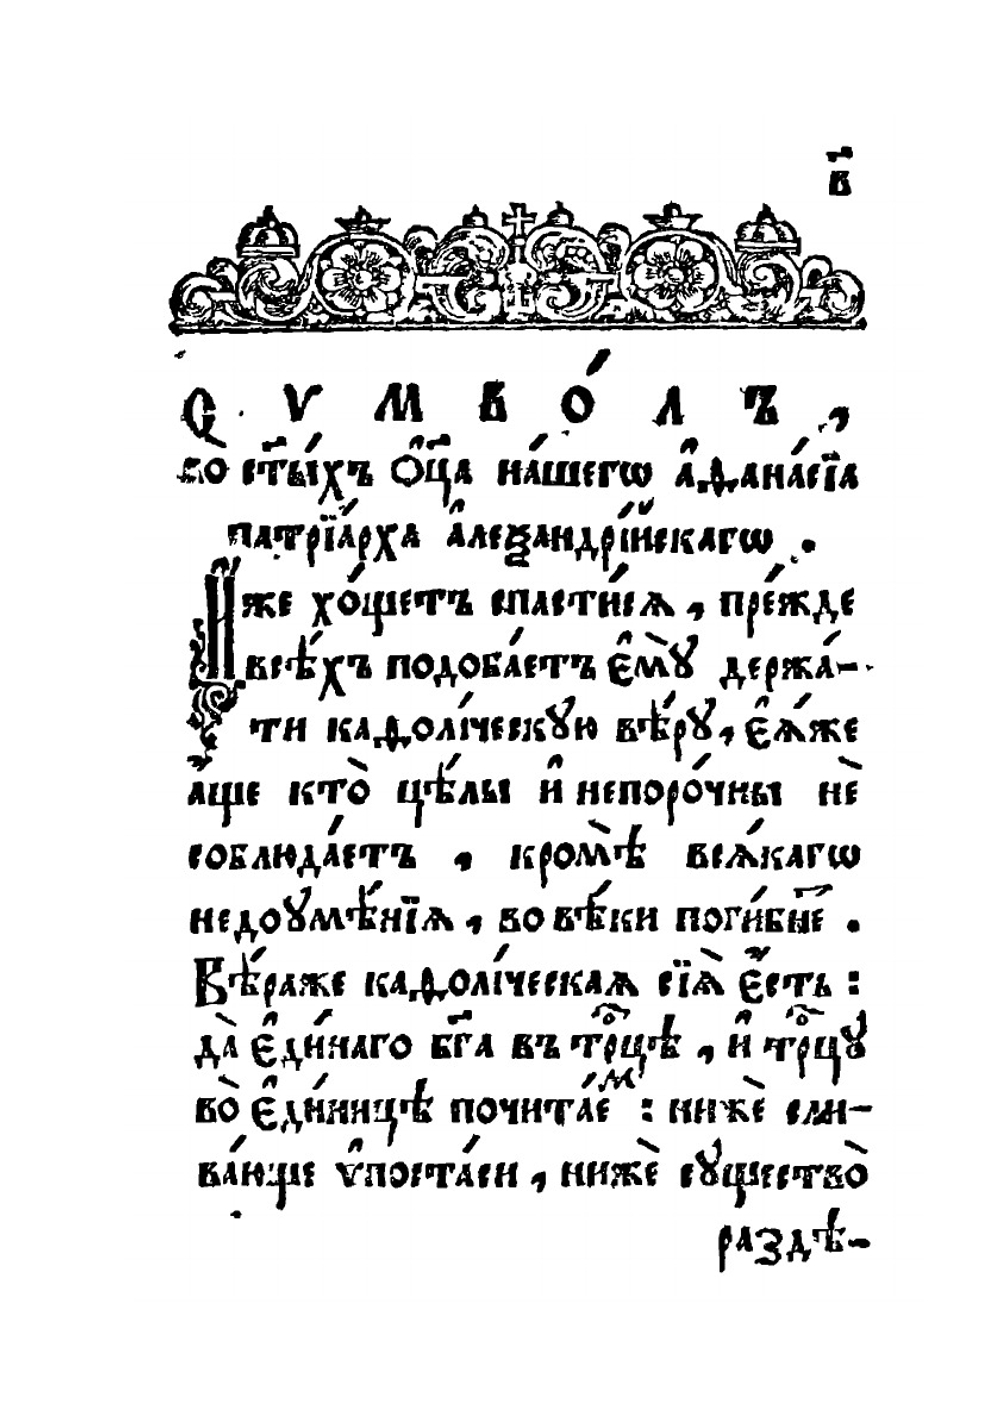 в҃
Сѷмво́лъ,
во ст҃ы́хъ Ѻ҆ц҃а на́шегѡ а҆ѳана́сїа
патрїа́рха а҆леѯандрі́йскагѡ .
И́же хо́щетъ спасти́сѧ , пре́жде
всѣ́хъ подоба́етъ є҆мꙋ̀ держа́-
ти каѳолі́ческꙋю вѣ́рꙋ , є҆ѧ́же
а́ще кто̀ цѣ́лы и҆ непоро́чны нѐ
соблюда́етъ , кромѣ̀ всѧ́кагѡ
недоꙋмѣ́нїѧ , во вѣ́ки поги́бне .
Вѣ́раже каѳолі́ческаѧ сїѧ̀ є҆́сть :
да̀ є҆ди́наго бг҃а въ трⷪ҇цѣ , и҆ трⷪ҇цꙋ
во̀ є҆ди́ницѣ почита́еⷨ : нижѐ сли-
ва́юще ѵ҆поста́си , нижѐ сꙋщество̀
раздѣ-